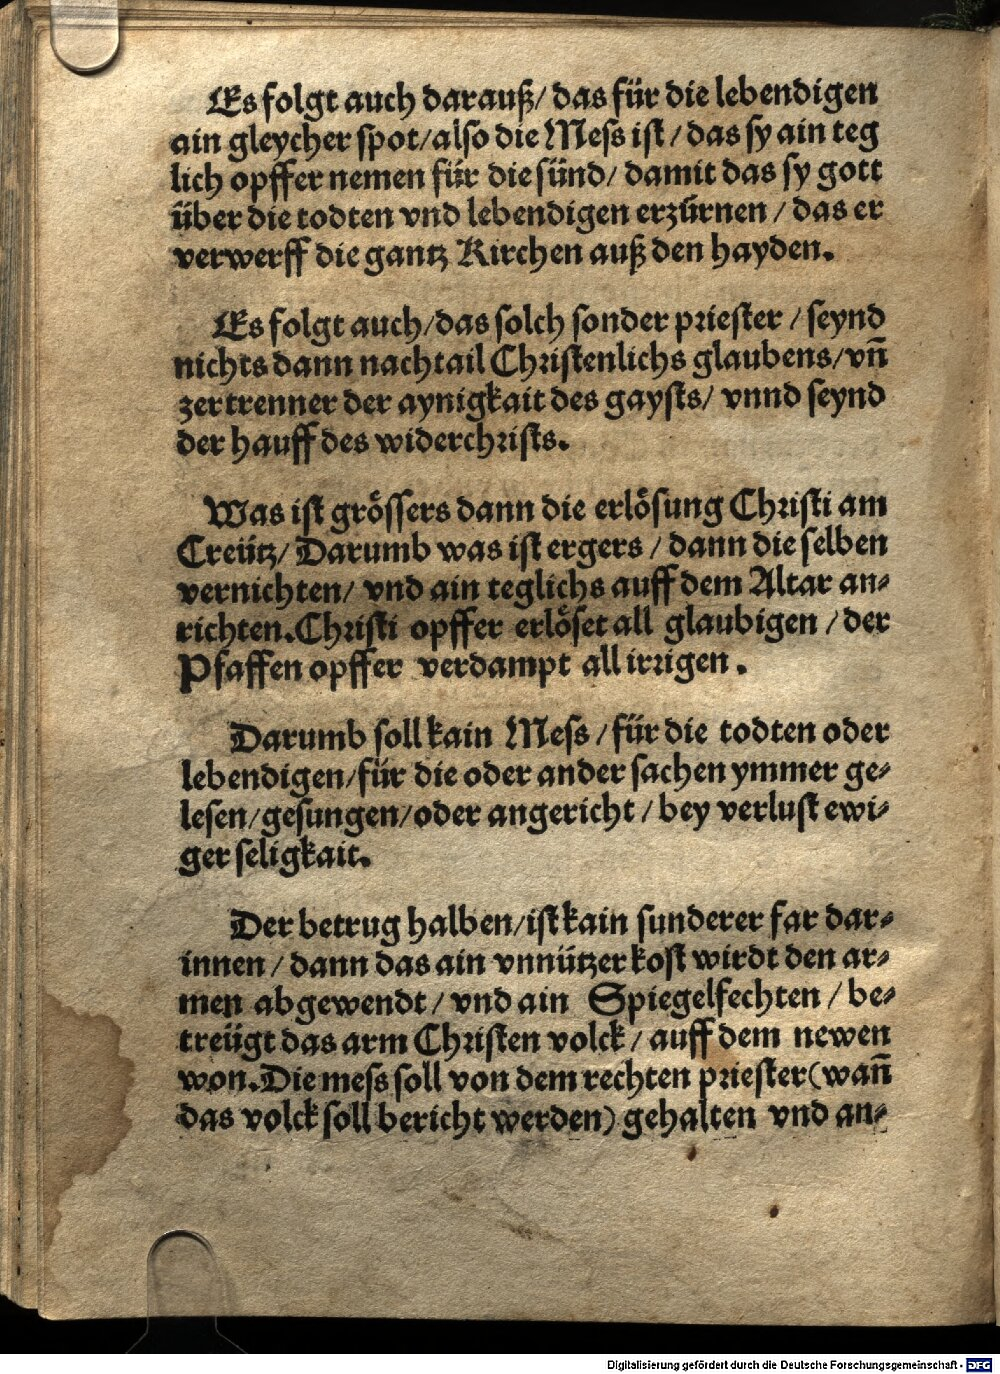 Es folgt auch darauß/ das für die lebendigen
ain gleycher spot/also die Mess ist/ das sy ain teg
lich opffer nemen für die sünd/ damit das sy gott
über die todten vnd lebendigen erzürnen/ das er
verwerff die gantz Kirchen auß den hayden.
Es folgt auch/das solch sonder priester/ seynd
nichts dann nachtail Christenlichs glaubens/vñ
zertrenner der aynigkait des gaysts/ vnnd seynd
der hauff des widerchrists.
Was ist grössers dann die erlösung Christi am
Creütz/ Darumb was ist ergers/ dann die selben
vernichten/ vnd ain teglichs auff dem Altar an-
richten.Christi opffer erlöset all glaubigen/ der
Pfaffen opffer verdampt all irrigen.
Darumb soll kain Mess/für die todten oder
lebendigen/für die oder ander sachen ymmer ge-
lesen/gesungen/oder angericht/ bey verlust ewi-
ger seligkait.
Der betrug halben/ist kain sunderer far dar-
innen/ dann das ain vnnützer kost wirdt den ar-
men abgewendt/ vnd ain Spiegelfechten/ be-
treügt das arm Christen volck/ auff dem newen
won.Die mess soll von dem rechten priester(wañ
das volck soll bericht werden) gehalten vnd an-
Digitalisierung gefördert durch die Deutsche Forschungsgemeinschaft - DFG